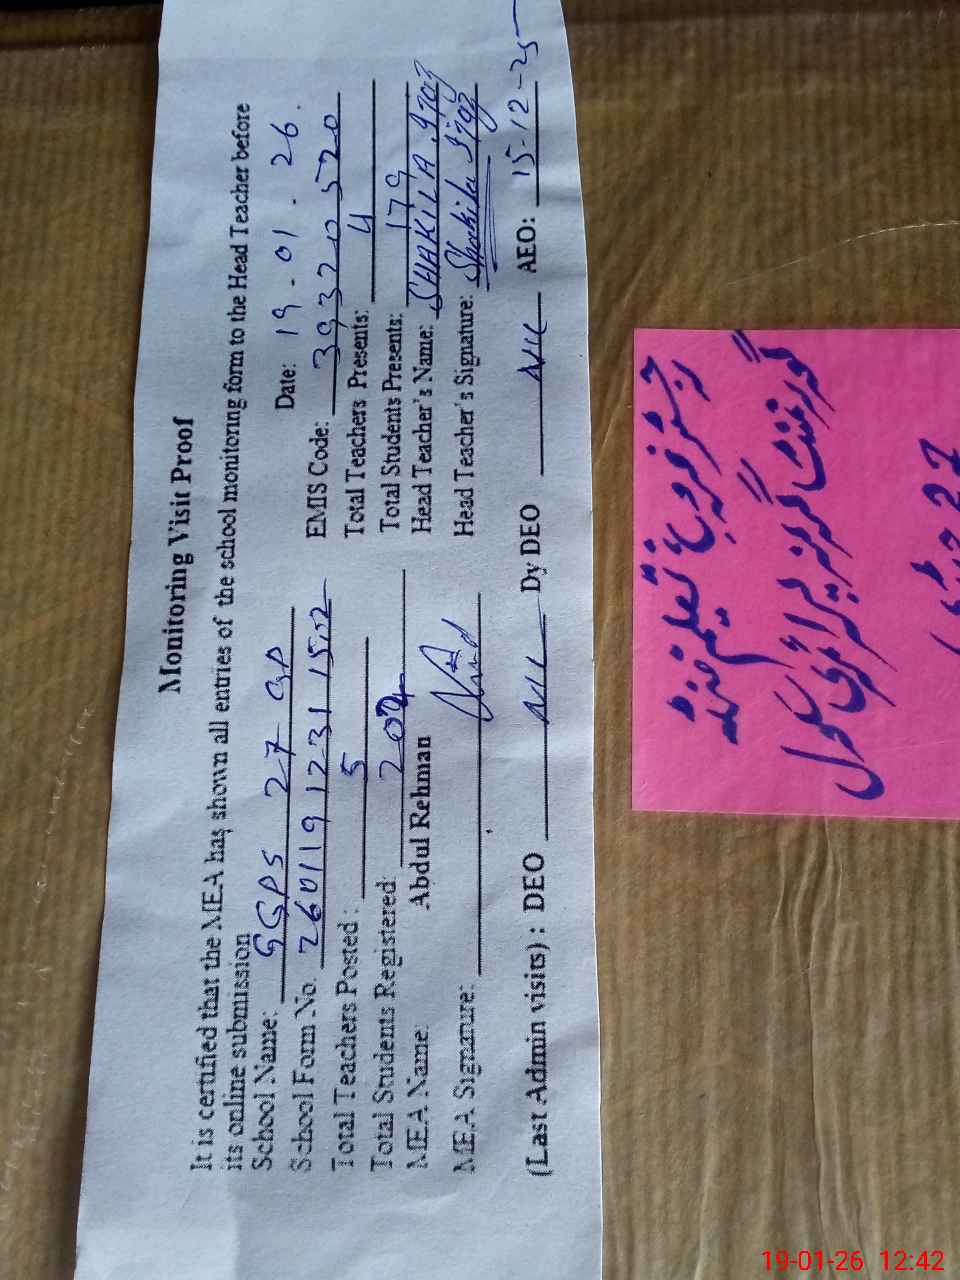 Monitoring Visit Proof
It is certified that the MEA has shown all entries of the school monitoring form to the Head Teacher before
its online submission
School Name: GGPS 27 GD Date: 19-01-26.
School Form No. 260119123115:12 EMIS Code: 39320520
Total Teachers Posted: 5 Total Teachers Presents: 4
Total Students Registered: 204 Total Students Presents: 179
MEA Name: Abdul Rehman Head Teacher's Name: SHAKILA
MEA Signature: Head Teacher's Signature: Shakila
(Last Admin visits) : DEO Nil Dy DEO Nil AEO: 15-12-25
رجسٹر فروغ تعلیم فنڈ
گورنمنٹ گرلز پرائمری سکول
27
19-01-26 12:42